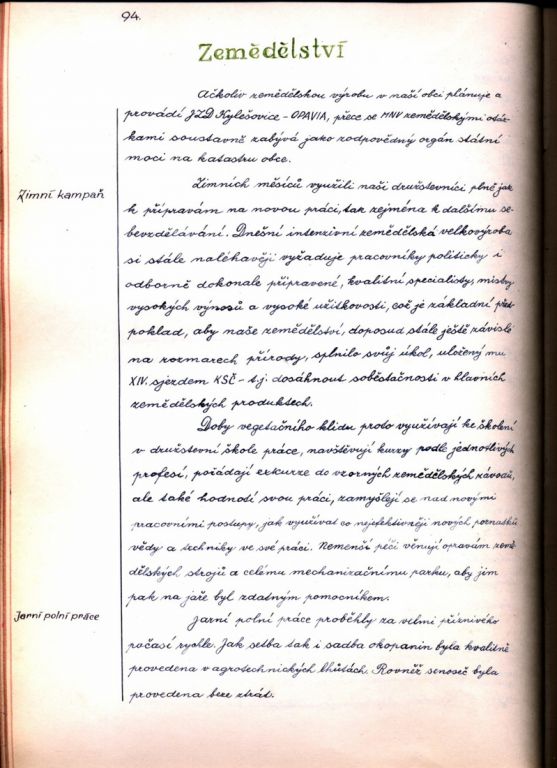 94.
Zemědělství
Ačkolev zemědělskou výrobu v naší obci plánuje a
provádí JZD Kylešovice - OPAVIA, přece se MNV zemědělskými otáz-
kami soustavně zabývá jako zodpovědný orgán státní
moci na katastru obce.
Zimní kampaň
Zimních měsíců využili naši družstevníci plně jak
k přípravám na novou práci, tak zejména k dalšímu se-
bevzdělávání. Dnešní intenzivní zemědělská velkovýroba
si stále naléhavěji vyžaduje pracovníky politicky i
odborně dokonale připravené, kvalitní specialisty, mistry
vysokých výnosů a vysoké užitkovosti, což je základní před-
poklad, aby naše zemědělství, doposud stále ještě závislé
na rozmarech přírody, splnilo svůj úkol, uložený mu
XIV. sjezdem KSČ - t.j. dosáhnout soběstačnosti v hlavních
zemědělských produktech.
Doby vegetačního klidu proto využívají ke školení
v družstevní škole práce, navštěvují kurzy podle jednotlivých
profesí, pořádají exkurze do vzorných zemědělských závodů,
ale také hodnotí svou práci, zamýšlejí se nad novými
pracovními postupy, jak využívat co nejefektivněji nových poznatků
vědy a techniky ve své práci. Nemenší péči věnují opravám země-
dělských strojů a celému mechanizačnímu parku, aby jim
pak na jaře byl zdatným pomocníkem.
Jarní polní práce
Jarní polní práce proběhly za velmi příznivého
počasí rychle. Jak setba tak i sadba okopanin byla kvalitně
provedena v agrotechnických lhůtách. Rovněž senoseč byla
provedena beze ztrát.